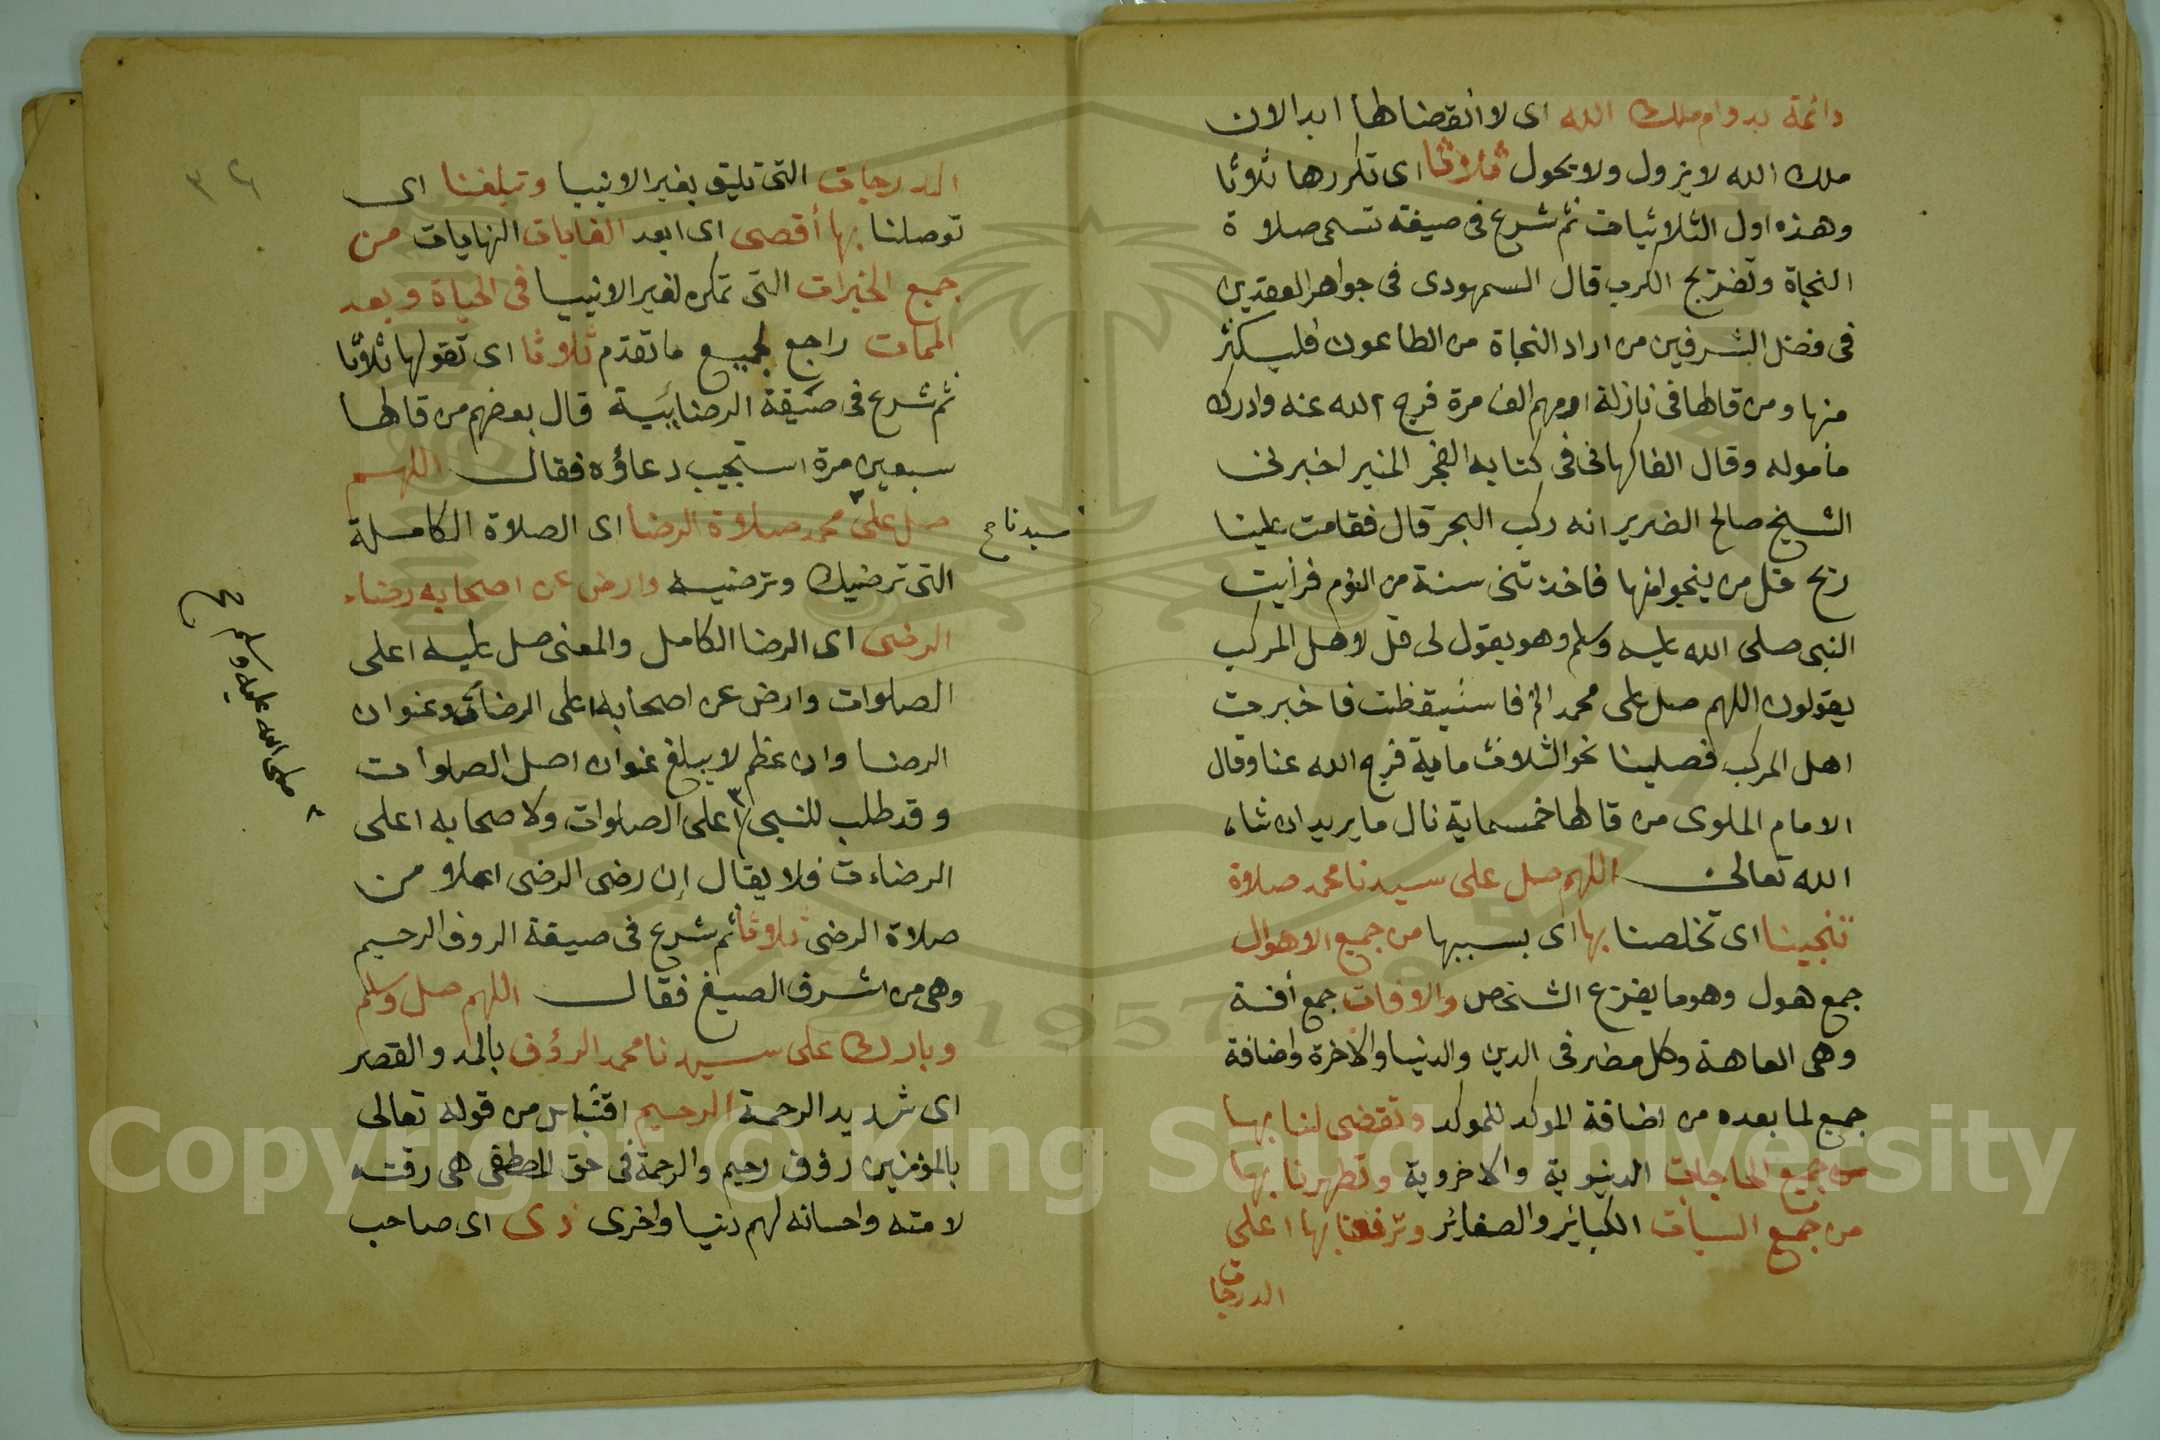 دائمة بدوام ملك الله اى لا انقضا لها ابدا لان
ملك الله لا يزول ولا يحول ثلاثا اى تكررها ثلاثا
وهذه اول الثلاثيات ثم شرع فى صيغة تسمى صلاة
النجاة وتفريج الكرب قال السمهودى فى جواهر العقدين
فى فضل الشرفين من اراد النجاة من الطاعون فليكثر
منها ومن قالها فى نازلة او مهم الف مرة فرج الله عنه وادرك
مأموله وقال الفاكهانى فى كتابه الفجر المنير اخبرنى
الشيخ صالح الضرير انه ركب البحر قال فقامت علينا
ريح قل من ينجوا منها فاخذتنى سنة من النوم فرأيت
النبى صلى الله عليه وسلم وهو يقول لى قل لاهل المركب
يقولون اللهم صل على محمد الخ فاستيقظت فاخبرت
اهل المركب فصلينا نحو الثلاث ماية فرج الله عنا وقال
الامام الملوى من قالها خمسماية نال ما يريد ان شاء
الله تعالى اللهم صل على سيدنا محمد صلاة
تنجينا اى تخلصنا بها اى بسببها من جميع الاهوال
جمع هول وهو ما يفزع الشخص والافات جمع أفة
وهى العاهة وكل مضر فى الدين والدنيا والاخرة واضافة
جميع لما بعده من اضافة الموكد للموكد وتقضى لنا بها
من جميع الحاجات الدنيوية والاخروية وتطهرنا بها
من جميع السيات الكبائر والصغائر وترفعنا بها اعلى
الدرجات
٣٢
الدرجات التى تليق بغير الانبيا وتبلغنا اى
توصلنا بها أقصى اى ابعد الغايات النهايات من
جميع الخيرات التى تمكن لغير الانبيا فى الحياة وبعد
الممات راجع لجميع ما تقدم ثلاثا اى تقولها ثلاثا
ثم شرع فى صيغة الرضايية قال بعضهم من قالها
سبعين مرة استجيب دعاؤه فقال اللهم
صل على محمد صلاة الرضا اى الصلاة الكاملة
سيدنا صح
التى ترضيك وترضيه وارض عن اصحابه رضاء
الرضى اى الرضا الكامل والمعنى صل عليه اعلى
الصلوات وارض عن اصحابه اعلى الرضائت وعنوان
الرضا وان عظم لا يبلغ عنوان اصل الصلوات
وقد طلب للنبى اعلى الصلوات ولاصحابه اعلى
صلى الله عليه وسلم صح
الرضاءت فلا يقال إن رضى الرضى اعلا من
صلاة الرضى ثلاثا ثم شرع فى صيغة الروف الرحيم
وهى من اشرف الصيغ فقال اللهم صل وسلم
وبارك على سيدنا محمد الرؤف بالمد والقصر
اى شديد الرحمة الرحيم اقتباس من قوله تعالى
بالمؤمنين رؤف رحيم والرحمة فى حق المصطفى هى رقته
لامته واحسانه لهم دنيا واخرى ذى اى صاحب
1957
Copyright © King Saud University